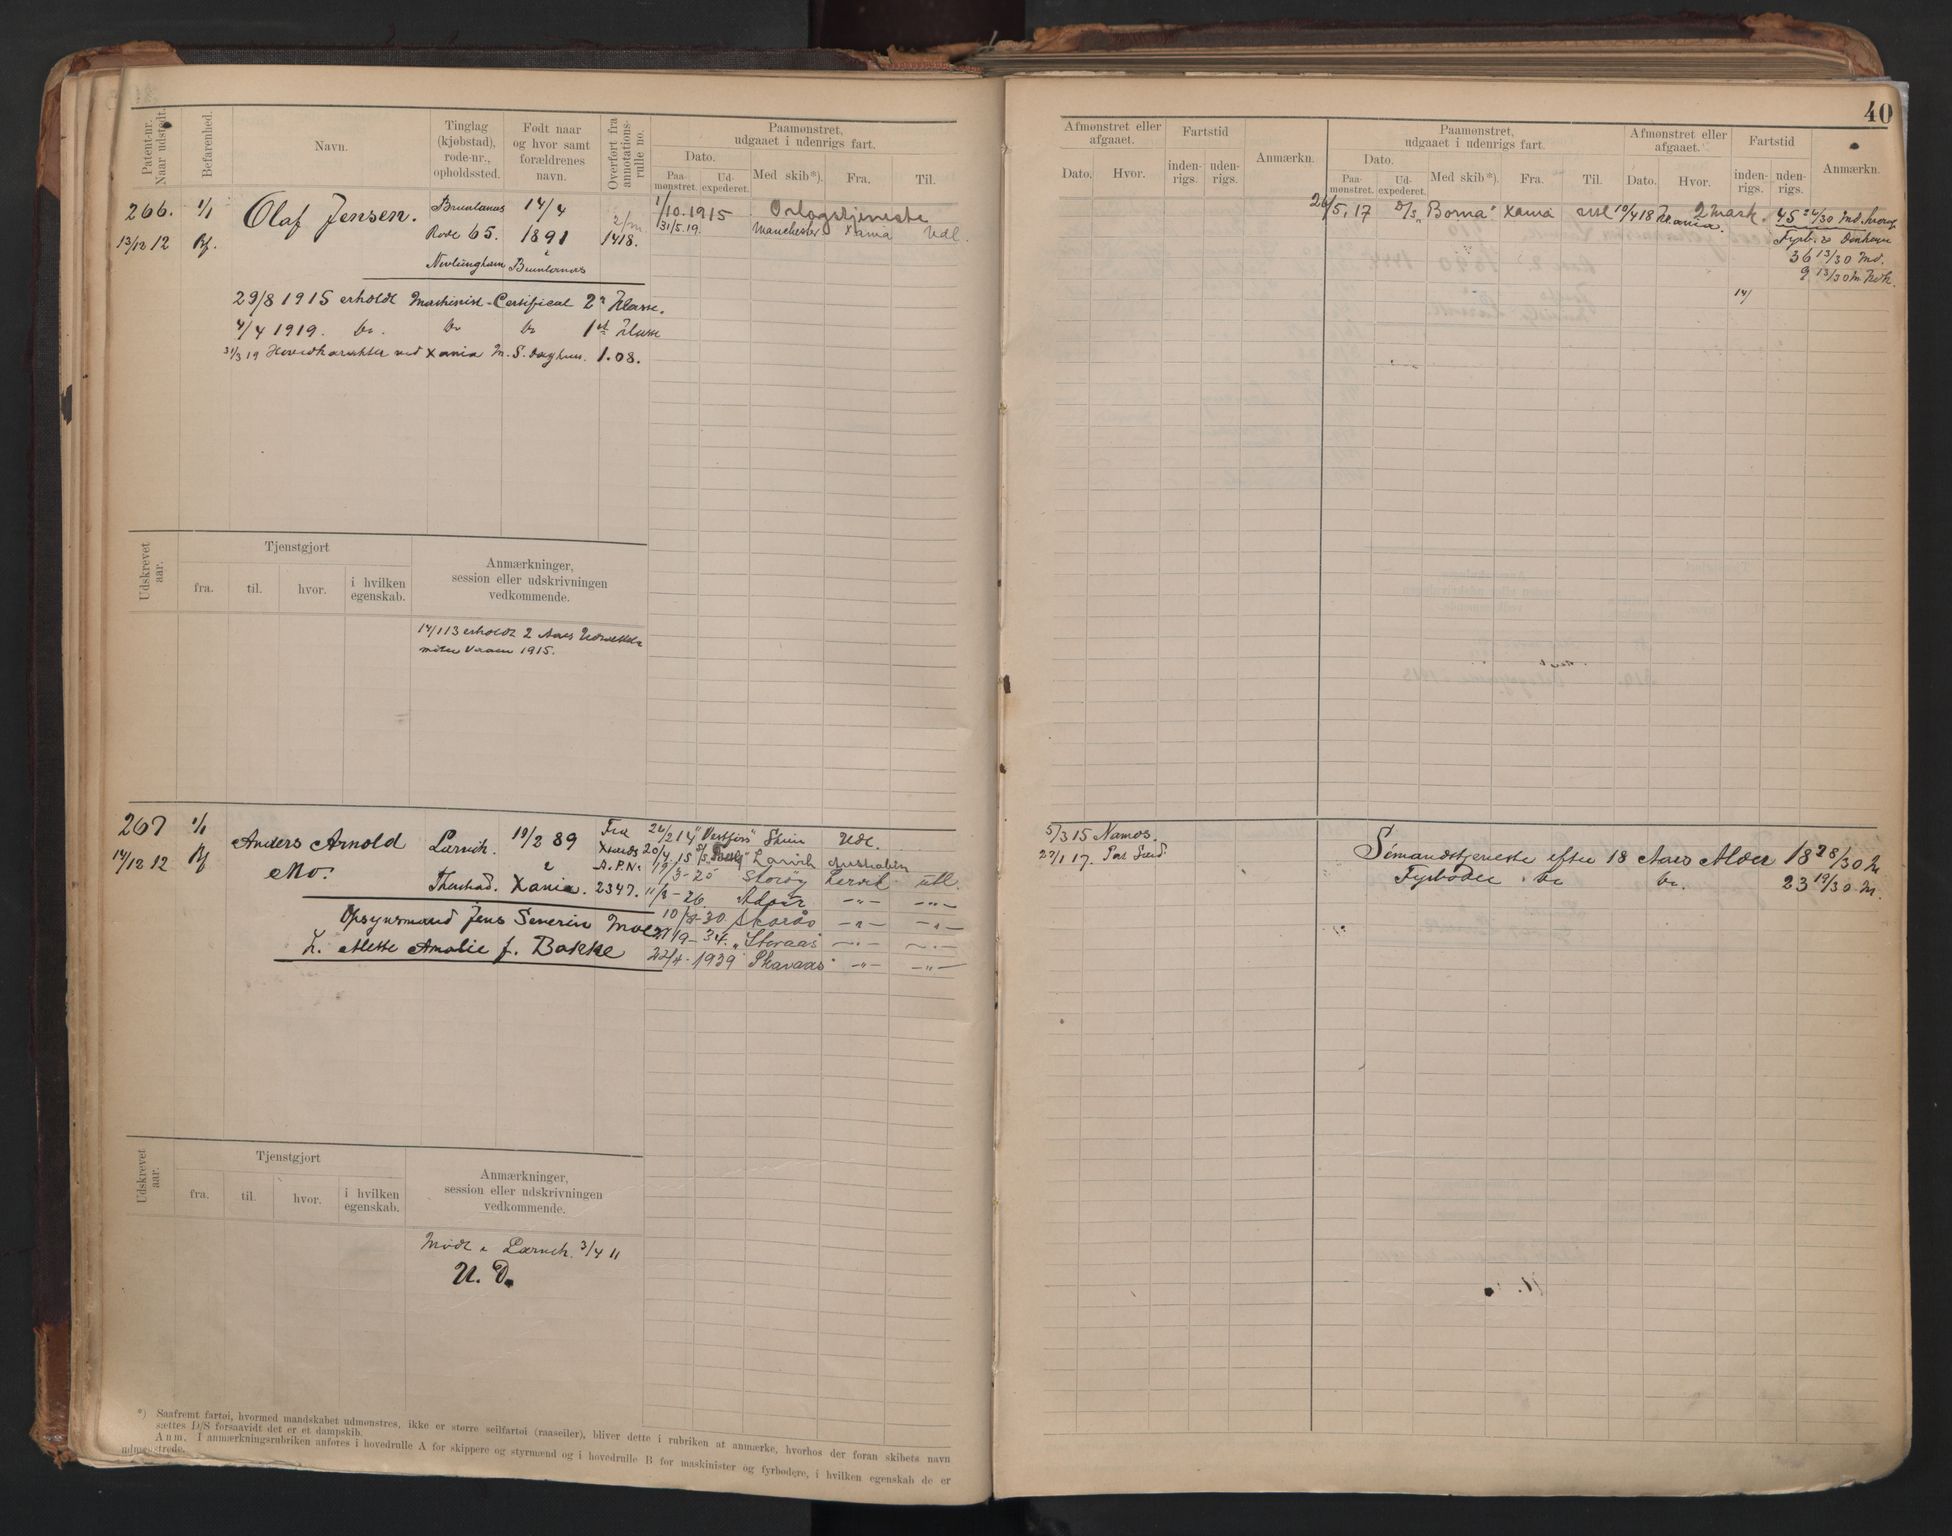 40
Patent-nr. Naar udstedt.
Befarenhed.
Navn.
Tinglag (kjøbstad), rode-nr., opholdssted.
Født naar og hvor samt forældrenes navn.
Overført fra annotationsrulle no.
Paamønstret, udgaaet i udenrigs fart.
Dato.
Paamønstret.
Udexpederet.
Med skib*).
Fra.
Til.
Afmønstret eller afgaaet.
Dato.
Hvor.
Fartstid
indenrigs.
udenrigs.
Anmærkn.
Paamønstret, udgaaet i udenrigs fart.
Dato.
Paamønstret.
Udexpederet.
Med skib*).
Fra.
Til.
Afmønstret eller afgaaet.
Dato.
Hvor.
Fartstid
indenrigs.
udenrigs.
Anmærkn.
266. 1/1 Olaf Jensen. Brunlanes 14/4 1/10.1915 Orlogstjeneste
13/12 12 Bf. Rode 65. 1891 1418. 31/5.19. Manchester Xania Udl.
Nevlungham Brunlanes
29/8 1915 erholdt Maskinist-Certifical 2n Klasse.
4/4 1919. Do. Do Do 1st Klasse
31/3 19 Hovedkarakter ved Xania M. S. 1.08.
26/5, 17 D/S "Borna" Xania 19/4 18 Kania. 2 Mask. 45 Md.
36 13/30 Md.
9 13/30 M.
14/
Udskrevet aar.
Tjenstgjort
fra.
til.
hvor.
i hvilken egenskab.
Anmærkninger, session eller udskrivningen vedkommende.
14/1 13 erholdt 2 Aars
1915.
267 1/1 Anders Arnold Larvik. 19/2 89 Fra 26/2 14 "Vestfos" Skien Udl.
14/12 12 Bf Mo. i 20/4 15 Larvik Australien
A.P.N. 19/3-25 Storøy Larvik utl.
Thorstad. Xania. 2347. 11/3-26. -"- -"-
Opsynsmand Jens Severin Moe 10/8-30. Skaraas -"- -"-
H. Mette Amalie f. Bakke /9-34. "Skaraas -"- -"-
22/4-1939 Skaraas -"- -"-
5/3 15 Namos.
22/1 17.
Sömandstjeneste efter 18 Aars Alder 18 28/30 M
Fyrböder Do Do. 23 19/30 M.
Udskrevet aar.
Tjenstgjort
fra.
til.
hvor.
i hvilken egenskab.
Anmærkninger, session eller udskrivningen vedkommende.
Mødt i Larvik. 3/4 11
U. D.
*) Saafremt fartøi, hvormed mandskabet udmønstres, ikke er større seilfartøi (raaseiler), bliver dette i rubriken at anmærke, hvorhos der foran skibets navn
sættes D/S forsaavidt det er et dampskib.
Anm. I anmærkningsrubriken anføres i hovedrulle A for skippere og styrmænd og i hovedrulle B for maskinister og fyrbødere, i hvilken egenskab de er
udmønstrede.